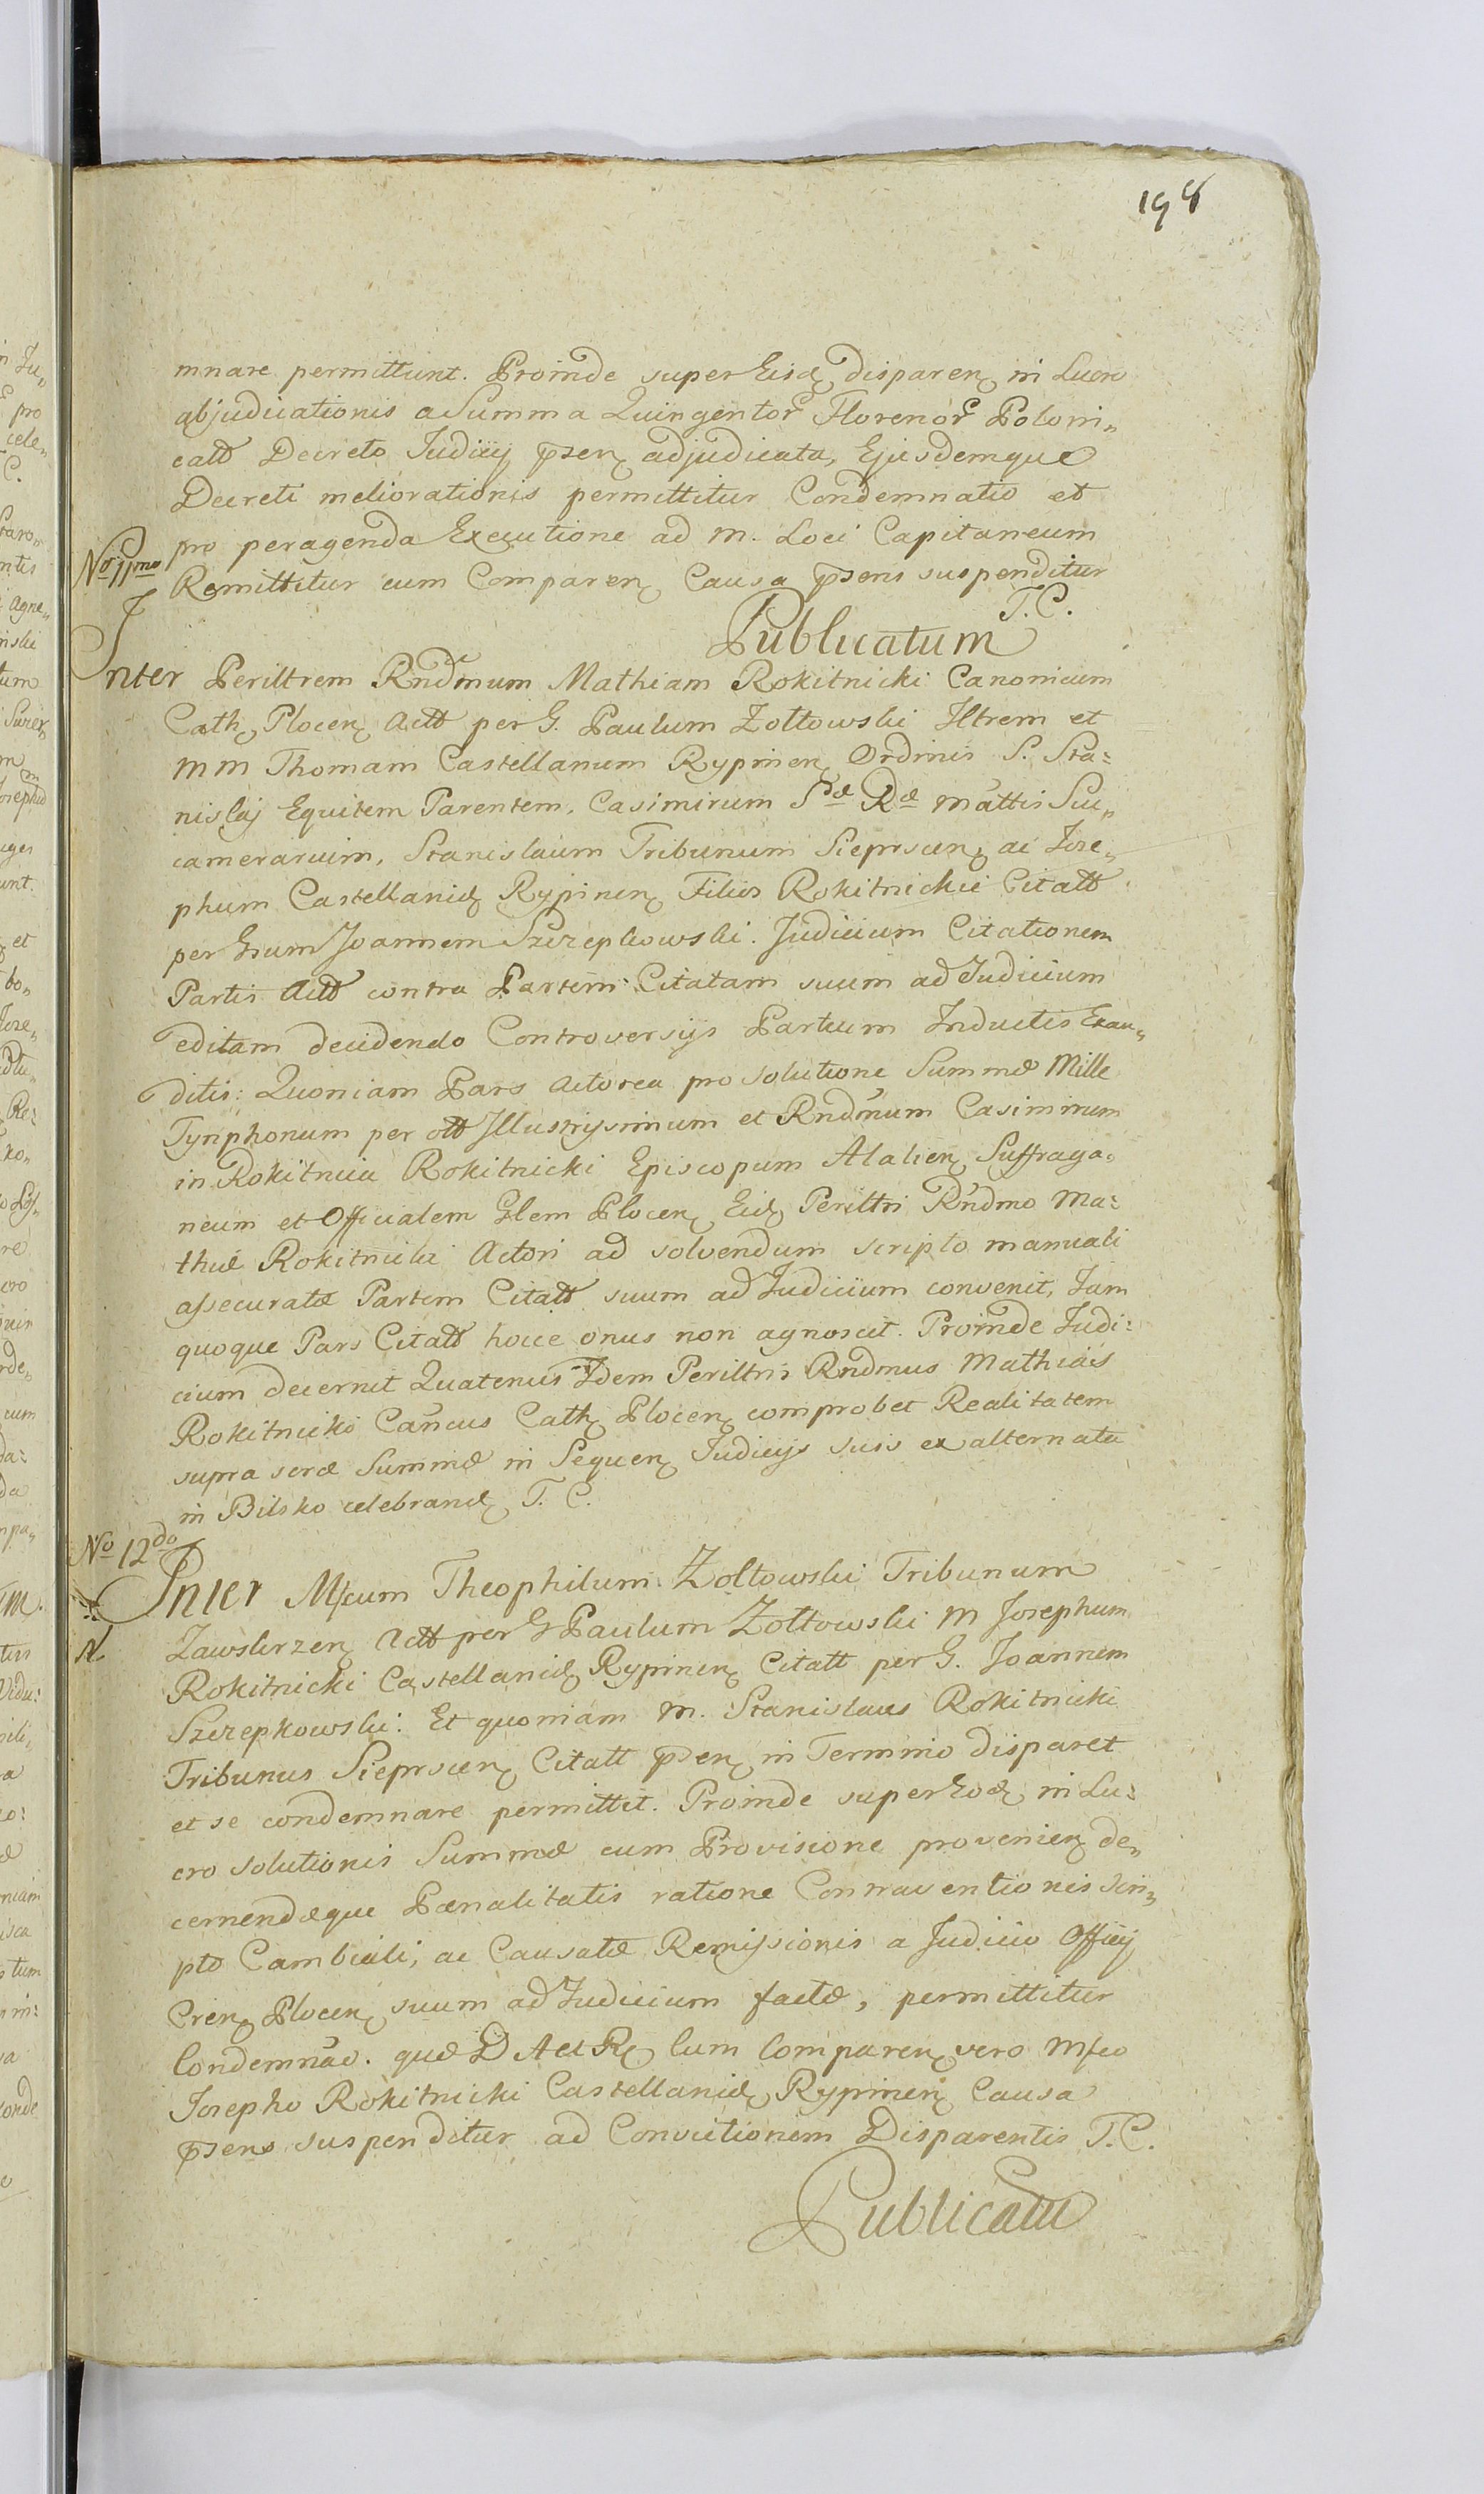 198
mnare permittunt. Proinde super Eisd disparen in Lucro
abjudicationis a Summa Quingentor Florenor Poloni„
call Decreto Judicij psen adjudicata, Ejusdemque
Decreti meliorationis permittitur Condemnatio et
pro peragenda Executione ad M. Loci Capitaneum
Remittitur cum Comparen Causa psens suspenditur
T. C.
Publicatum
No 11mo
Inter Perilltrem Rndmum Mathiam Rokitnicki Canonicum
Cath Plocen Actt per G. Paulum Zołtowski Illtrem et
MM Thomam Castellanum Rypinen Ordinis S. Sta:
nislaj Equitem Parentem, Casimirum S R Mattis Suc„
camerarium, Stanislaum Tribunum Sieprscen ac Jose„
phum Castellanid Rypinen Filios Rokitnickie Citatt
per Gsum Joannem Szczepkowski. Judicium Citationem
Partis Actt contra Partem Citatam suum ad Judicium
editam decidendo Controversijs Partium Inductis Exau„
ditis: Quoniam Pars Actorea pro solutione Summæ Mille
Tynphonum per ott Illustrissimum et Rndmum Casimirum
in Rokitnica Rokitnicki Episcopum Alalien Suffraga„
neum et Officialem Glem Plocen Eid Perilltri Rndmo Ma:
thiæ Rokitnicki Actori ad solvendum scripto manuali
assecuratæ Partem Citatt suum ad Judicium convenit, Jam
quoque Pars Citatt hocce onus non agnoscit. Proinde Judi:
cium decernit Quatenus Idem Perilltris Rndmus Mathias
Rokitnicki Cancus Cath Plocen comprobet Realitatem
supra scræ Summæ in Sequen Judicijs suis ex alternata
in Bilsko celebrand T. C.
No 12do
Inter Mfcum Theophilum Zołtowski Tribunum
Zawskrzen Actt per G Paulum Zołtowski M Josephum
Rokitnicki Castellanid Rypinen Citatt per G. Joannem
Szczepkowski: Et quoniam M. Stanislaus Rokitnicki
Tribunus Sieprscen Citatt psen in Termino disparet
et se condemnare permittit. Proinde super Eod in Lu:
cro solutionis Summæ cum Provisione provenien de„
cernendæque Pænalitatis ratione Contraventionis Scri„
pto Cambiali, ac Causatæ Remissionis a Judicio Officij
Cren Plocen suum ad Judicium factæ, permittitur
Condemnao. quæ D Act R Cum Comparen vero Mfco
Josepho Rokitnicki Castellanid Rypinen Causa
psens suspenditur ad Convictionem Disparentis T. C.
Publicatu